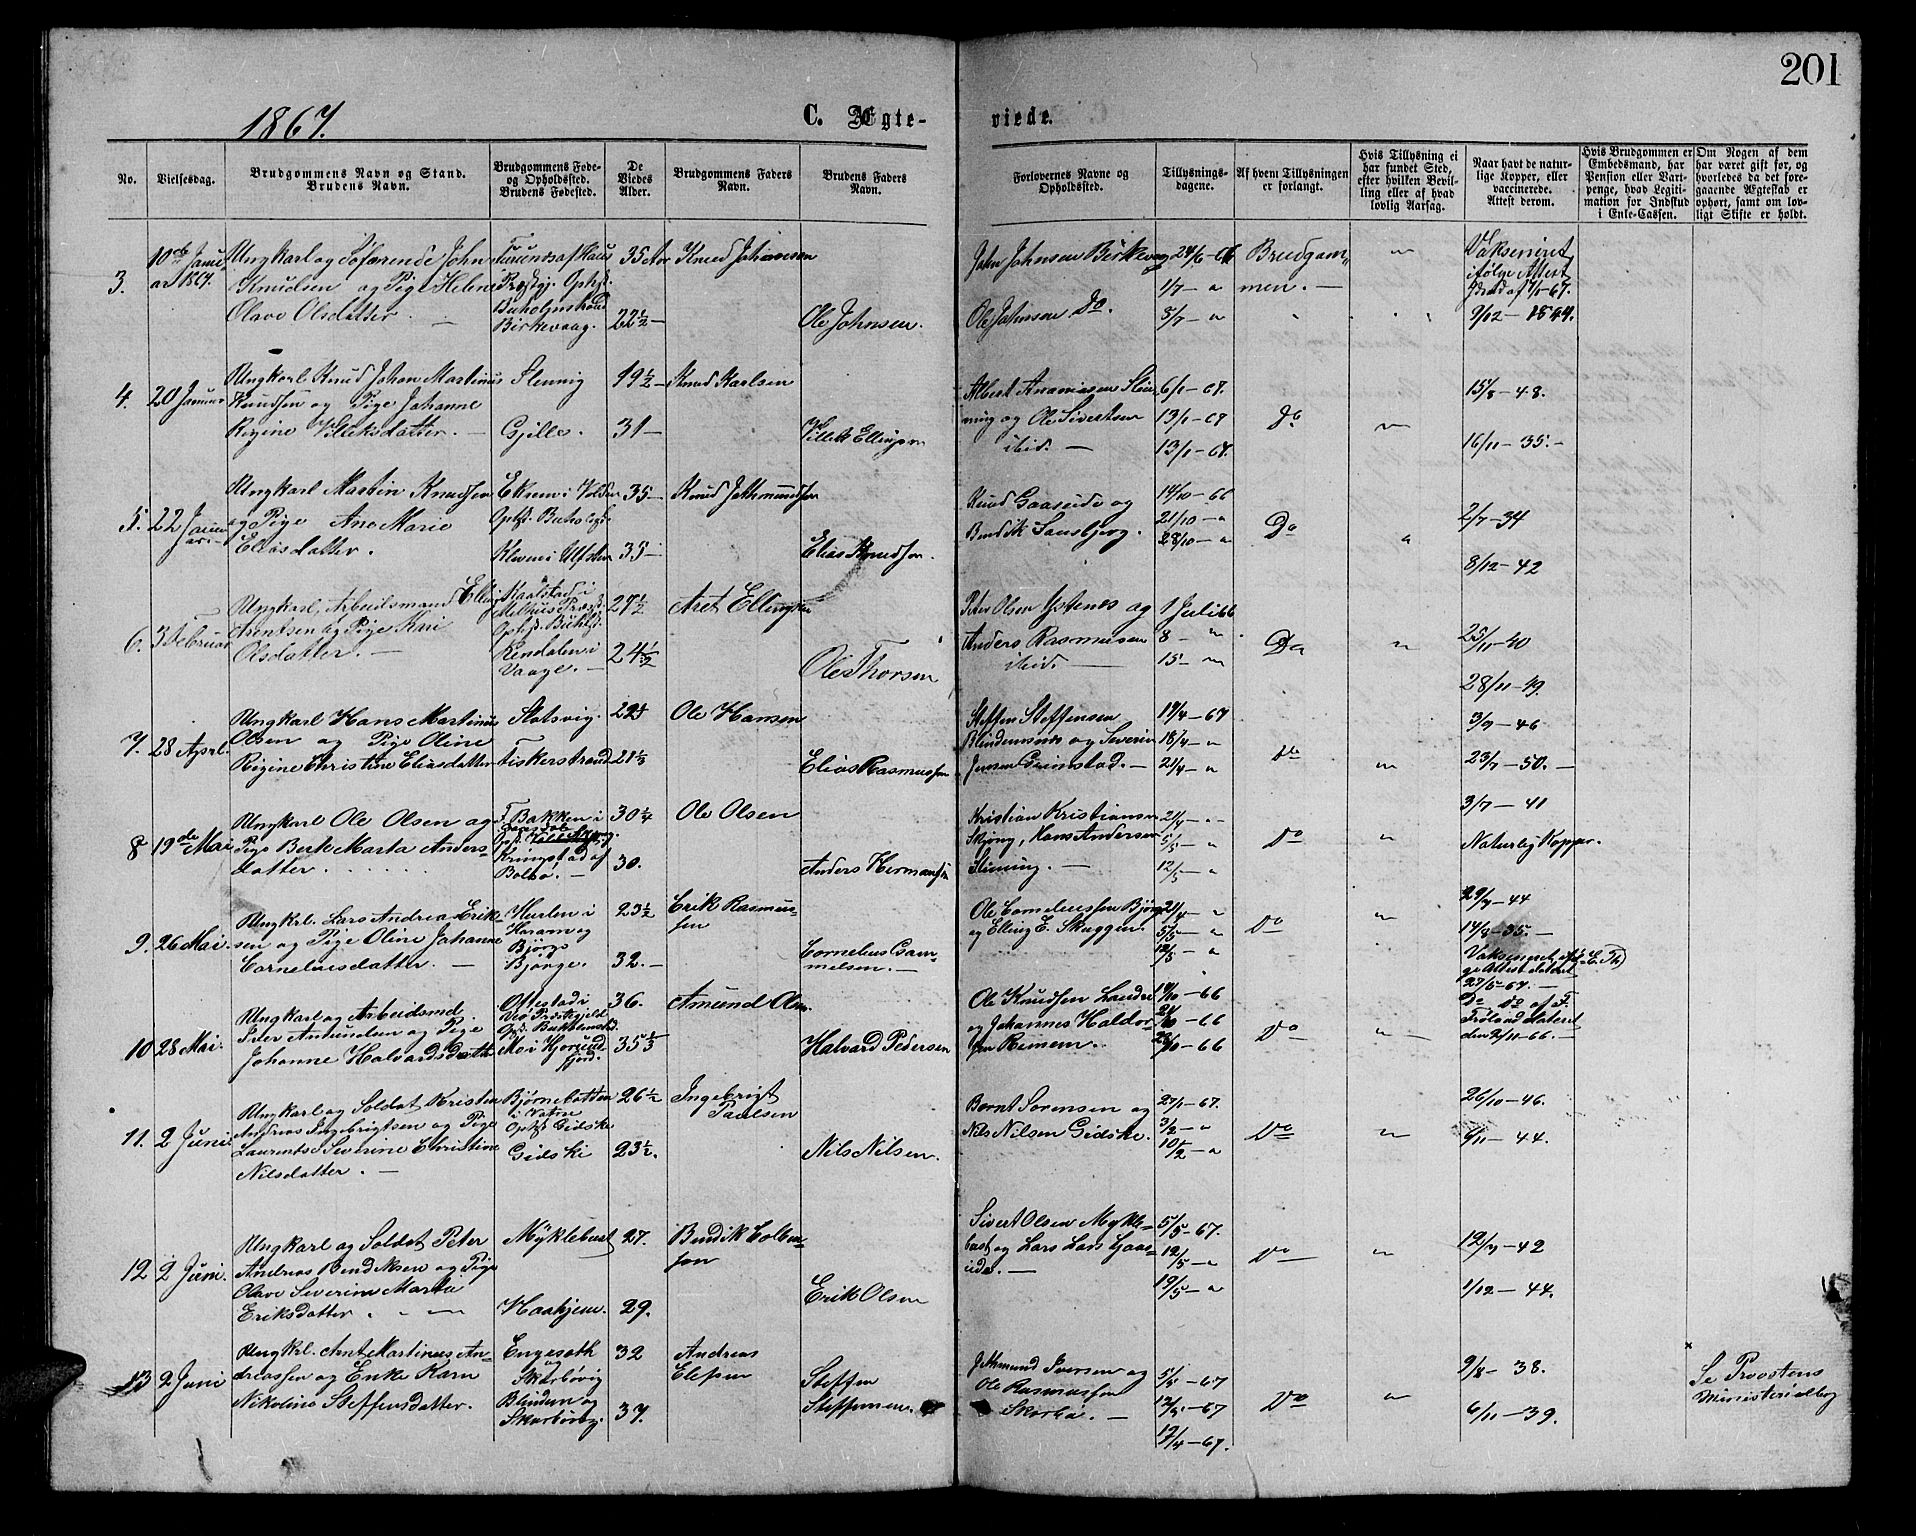 201
1867.
C. Ægte-
viede.
No.
Vielsesdag.
Brudgommens Navn og Stand.
Brudens Navn.
Brudgommens Føde-
og Opholdssted.
Brudens Fødested.
De
Viedes
Alder.
Brudgommens Faders
Navn.
Brudens Faders
Navn.
Forlovernes Navne og
Opholdssted.
Tillysnings-
dagene.
Af hvem Tillysningen
er forlangt.
Hvis Tillysning ei
har fundet Sted,
efter hvilken Bevil-
ling eller af hvad
lovlig Aarsag.
Naar havt de natur-
lige Kopper, eller
vaccinerede.
Attest derom.
Hvis Brudgommen er
Embedsmand, har
Pension eller Vart-
penge, hvad Legiti-
mation for Indskud
i Enke-Cassen.
Om Nogen af dem
har været gift før, og
hvorledes da det fore-
gaaende Ægteskab er
ophørt, samt om lov-
ligt Skifte er holdt.
3.
10de Janu-
ar 1867.
Ungkarl og Søfarende John
Knudsen og Pige Helene
Olave Olsdatter.
Præstgj. Opholds.
Buholmstrand
Birkevaag.
35 Aar
22½ —
Knud Johansen
Ole Johnsen.
John Johnsen Birkevaag
Ole Johnsen Do.
24/6 - 66
1/7 — "
5/7 — "
Brudgom-
men. —
"
Vaksineret
ifølge Attest
af 7/1-67.
9/12 - 1844.
4.
20 Januar
Ungkarl Knud Johan Martinus
Knudsen og Pige Johanne
Regine Villiksdatter. —
Slenning
Gjille.
19½ —
31 —
Knud Karlsen
Villik Ellingsen
Albert Ananiasen Slen-
ning og Ole Sivertsen
ibid. —
6/1 - 67.
13/1 - 67
13/1 - 67.
Do
"
15/8 - 48.
16/11 - 35. -
5.
22 Janu-
ari
Ungkarl Martin Knudsen
og Pige Ane Marie
Eliasdatter.
Eksem i Volden
Ophst. Buholst.
Kleven i Ulfsten
35 —
35 —
Knud Jethmundsen
Elias Knudsen.
Knud Gaaseide og
Bendik Sausbjerg.
14/10 - 66
21/10 - "
28/10 - "
Do
"
2/7 - 34
8/12 - 42
6.
3 Februar
Ungkarl, Arbeidsmand Elling
Arentsen og Pige Kari
Olsdatter. —
Kaalstad i
Melhus Præstg.
Ophst. Buholst.
Rendalen i
Vaage. —
27½
24½
Aret Ellingsen
Ole Thorsen
Peter Olsen Ystenes og
Anders Rasmussen
ibid. —
1 Juli 66
8 - "
15 - "
Do
"
25/11 - 40
28/11 - 49.
7.
28 April.
Ungkarl Hans Martinus
Olsen og Pige Oline
Regine Christine Eliasdatter
Slotsvig.
Fiskerstrand
Ole Hansen
Elias Rasmussen
Steffen Steffensen
Blindemsnes og Severin
Jensen Grimstad. —
14/4 - 67
18/4 - "
21/4 - "
Do
"
3/9 - 46
23/7 - 50. —
8
19de Mai
Ungkarl Ole Olsen og
Pige Berte Marta Anders-
datter.
F. Bakken i
Kringstad af
Bolsø. —
30¼
30.
Ole Olsen
Anders Hermansen
Kristian Kristiansen
Skjong, Hans Andersen
Slinning. —
21/4 - "
5/5 - "
12/5 - "
Do
"
3/7 - 41
Naturlig Kopper.
9.
26 Mai.
Ungkrl. Lars Andreas Erik-
sen og Pige Oline Johanne
Corneliusdatter. —
Hurlen i
Haram og
Bjørge
Bjørge.
23½
32. —
Erik Rasmus-
sen
Cornelius Gam-
melsen. —
Ole Corneliussen Bjørge
og Elling E. Skuggen.
21/4 - "
5/5 - "
12/5 - "
Do
"
29/9 - 44
14/8 - 35. —
10
28 Mai.
Ungkarl og Arbeidsmd.
Peer Amundsen og Pige
Johanne Halvardsdatter
Ottestad i
Veø Præstegjeld
Opst. Buholmstd.
Mo i Hjørund-
fjord.
36.
Amund Olsen
Halvard Pedersen
Ole Knudsen Landre
og Johannes Haldor-
sen Remem.
14/10 - 66
21/10 - 66
28/10 - 66
Do
"
Vaksineret, ifølge C. Th.
Attest dateret
27/5 - 67. —
Do Do af F.
Frøland dateret
den 2/11 - 66. —
11.
2 Juni
Ungkarl og Soldat Kristen
Andreas Ingebrigtsen og Pige
Laurentse Severine Christine
Nilsdatter. —
Bjørnebotten
i Vatne
Ophst Gidske
Gidske
26½
23½.
Ingebrigt
Paulsen
Nils Nilsen.
Bernt Sørensen og
Nils Nilsen Gidske.
27/1 - 67.
3/2 - "
10/2 - "
Do
"
26/10 - 46.
9/11 - 44.
12
2 Juni.
Ungkarl og Soldat Peter
Andreas Bendiksen og Pige
Olave Severine Marta
Eriksdatter
Myklebust
Haahjem.
27.
29.
Bendik Colben-
sen
Erik Olsen
Sivert Olsen Mykle-
bust og Lars Lars Gaas-
eide. —
5/5 - 67.
12/5 - "
19/5 - "
Do
"
12/9 - 42
1/12 - 44.
13
2 Juni
Ungkrl. Arnt Martinus An-
dreassen og Enke Karn
Nikoline Steffensdatter.
Engeseth
og
Skarbøvig
Blindem og
Skarbøvig.
32
37.
Andreas
Elepen
Steffen
Steffensen.
Jethmund Iversen og
Ole Rasmussen
Skarbø. —
5/5 - 67
12/5 - 67
17/4 - 67.
Do
"
9/8 - 38.
6/11 - 39.
×
Se Provstens
Ministerialbog